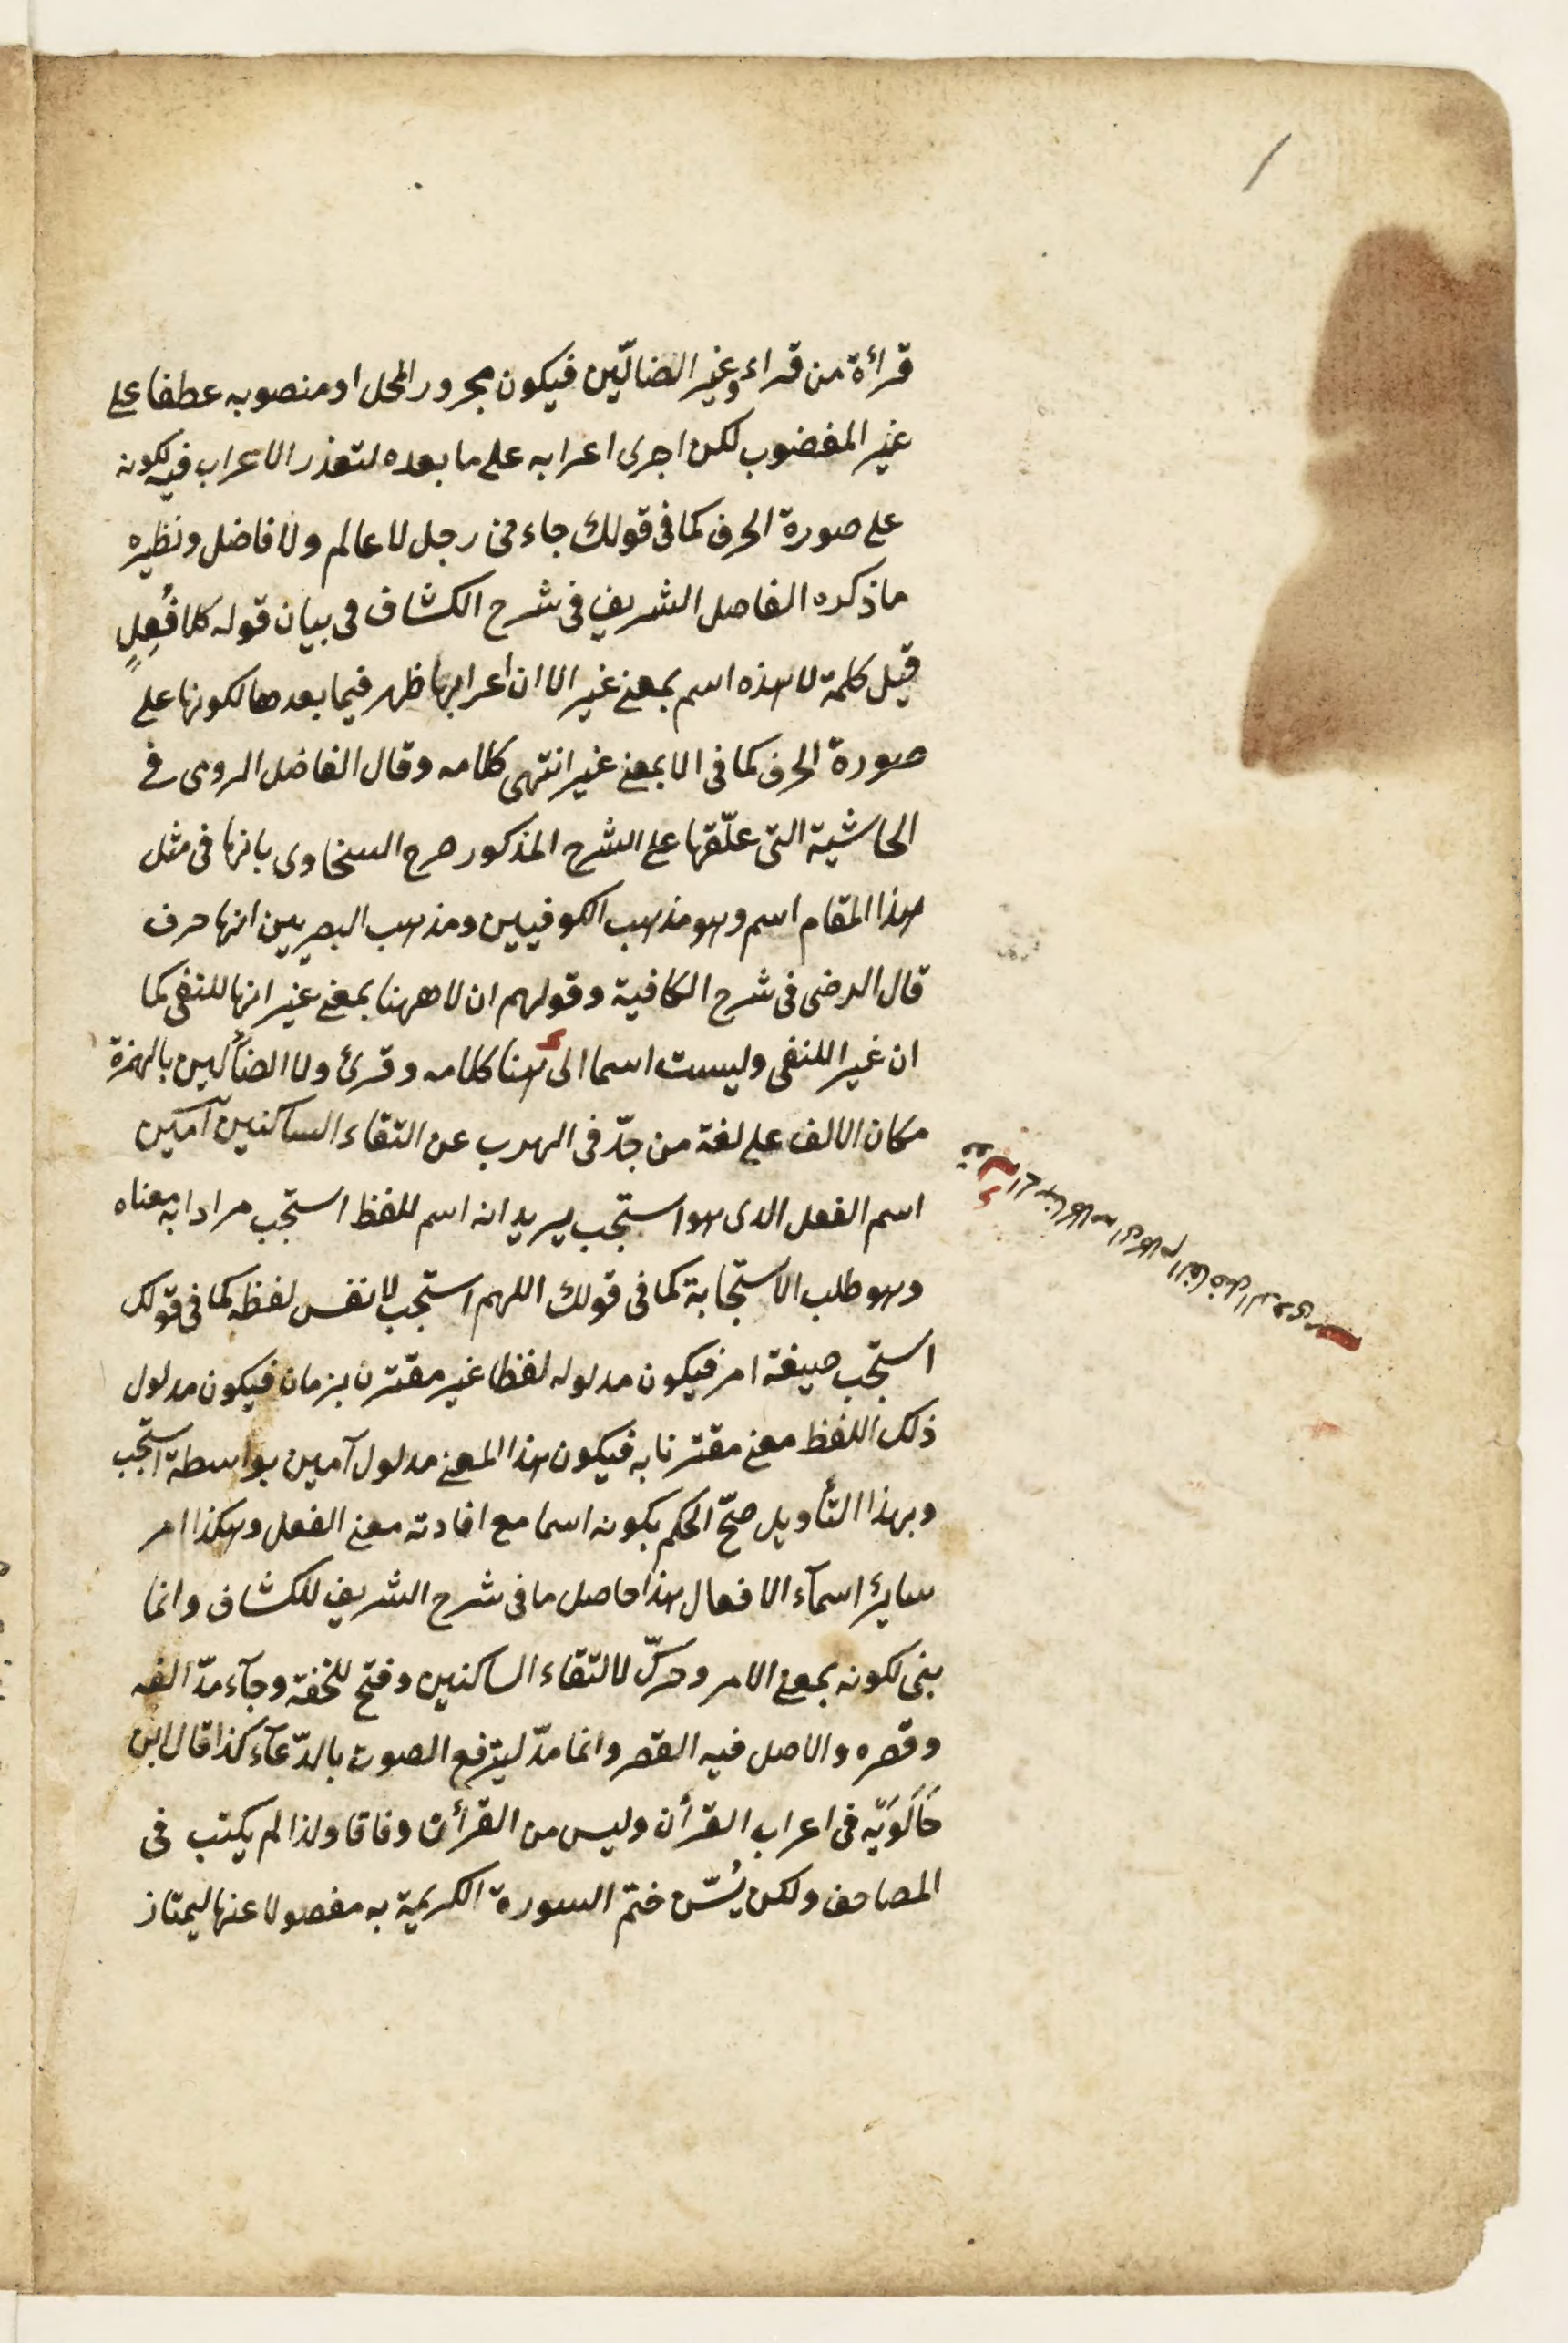 قرأة من قراء وغير الضالّين فيكون مجرور المحل او منصوبه عطفا على
غير المغضوب لكن اجرى اعرابه على ما بعده لتعذر الاعراب فيه لكونه
على صورة الحرف كما فى قولك جاءنى رجل لا عالم ولا فاضل ونظيره
ما ذكره الفاضل الشريف فى شرح الكشاف فى بيان قوله كلا فُعِلٍ
قيل كلمة لا هذه اسم بمعنى غير الا ان اعرابها ظهر فيما بعدها لكونها على
صورة الحرف كما فى الا بمعنى غير انتهى كلامه وقال الفاضل الرومى فى
الحاشية التى علّقها على الشرح المذكور صرح السخاوى بانها فى مثل
هذا المقام اسم وهو مذهب الكوفيين ومذهب البصريين انها حرف
قال الرضى فى شرح الكافية وقولهم ان لا ههنا بمعنى غير انها للنفى كما
ان غيرا للنفى وليست اسما الى هنا كلامه وقرئ ولا الضألين بالهمزة
مكان الالف على لغة من جدّ فى الهرب عن التقاء الساكنين آمين
اسم الفعل الذى هو استجب يريد انه اسم للفظ استجب مرادا به معناه
وهو طلب الاستجابة كما فى قولك اللهم استجب لا نفس لفظه كما فى قولك
استجب صيغة امر فيكون مدلوله لفظا غير مقترن بزمان فيكون مدلول
ذلك اللفظ معنى مقترنا به فيكون هذا المعنى مدلول آمين بواسطة استجب
وبهذا التأويل صحّ الحكم بكونه اسما مع افادته معنى الفعل وهكذا امر
سايرئ اسمآء الافعال هذا حاصل ما فى شرح الشريف للكشاف وانما
بنى لكونه بمعنى الامر وحرّك لالتقاء الساكنين وفتح للخفة وجآء مدّ الفه
وقصره والاصل فيه القصر وانما مدّ ليرتفع الصوت بالدّعآء كذا قال ابن
خَالَوَيْه فى اعراب القرأن وليس من القرأن وفاقا ولذا لم يكتب فى
المصاحف ولكن يُسّن ختم السورة الكريمة به مفصولا عنها ليمتاز
الى هنا كلامه اى كلام الفاضل الرومى